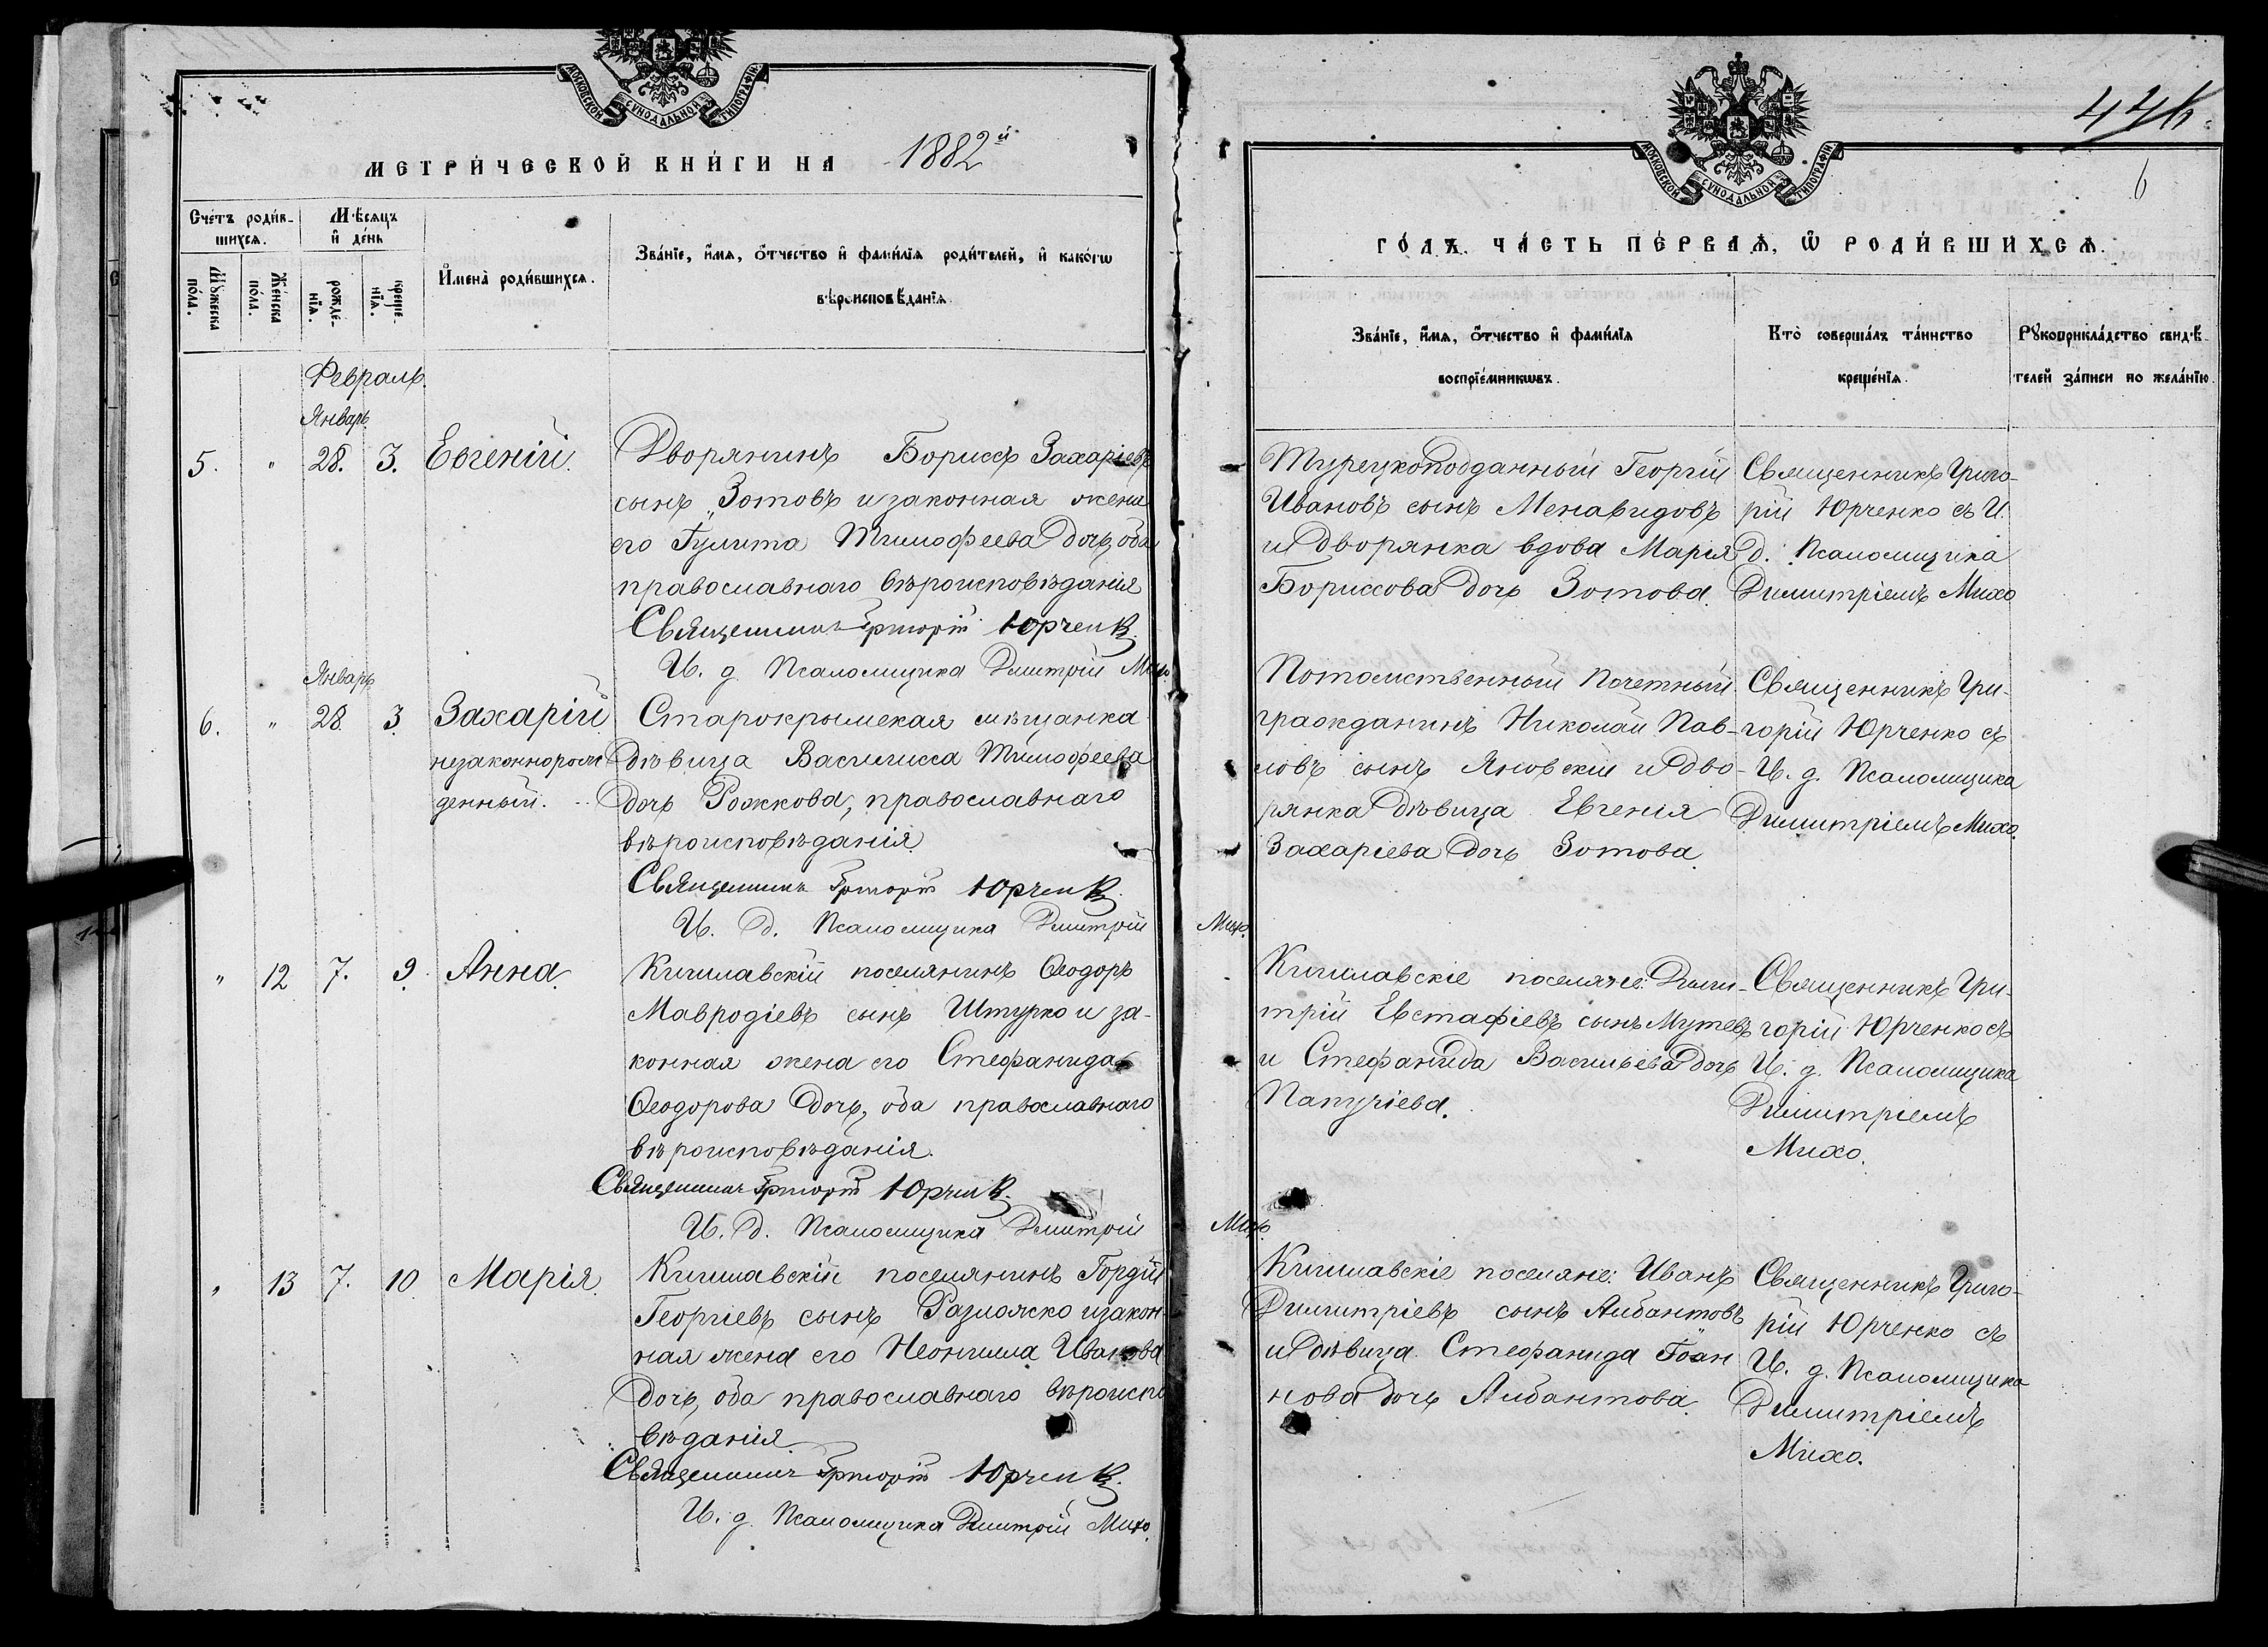 МОСКОВСКОЙ СѴНОДАЛЬНОЙ ТИПОГРАФІИ
МЕТРИ́ЧЕСКОЙ КНИ́ГИ НА 1882й
Сче́тъ роди́в-
шихсѧ.
Мѣ́сѧцъ
и҆ де́нь
Мꙋ́жеска
по́ла.
Же́нска
по́ла.
рожде-
нїѧ.
креще-
нїѧ.
И҆мена̀ роди́вшихсѧ.
Зва́нїе, и҆́мѧ, ѻ҆́тчество и҆ фами́лїѧ роди́телей, и҆ како́гѡ
вѣроисповѣ́данїѧ.
Февраль.
Январь
5. " 28. 3. Евгеній.
Дворянинъ Борисъ Захаріевъ
сынъ Зотовъ и законная жена
его Іулита Тимофеева дочь, оба
православнаго вѣроисповѣданія
Священникъ Григорій Юрченко
И. д. Псаломщика Дмитрій Михо.
Январь
6. " 28 3. Захарій
незаконнорож
денный.
Старокрымская мѣщанка
дѣвица Василисса Тимофеева
дочь Рожкова, православнаго
вѣроисповѣданія
Священникъ Григорій Юрченко
И. д. Псаломщика Дмитрій Михо.
" 12 7. 9. Анна.
Кишлавскій поселянинъ Ѳеодоръ
Мавродіевъ сынъ Штурко и за-
конная жена его Стефанида
Ѳеодорова дочь, оба православнаго
вѣроисповѣданія.
Священникъ Григорій Юрченко
И. д. Псаломщика Дмитрій Михо.
" 13 7. 10. Марія.
Кишлавскій поселянинъ Гордій
Георгіевъ сынъ Размояско и закон-
ная жена его Неонилла Иванова
дочь, оба православнаго вѣроиспо
вѣданія.
Священникъ Григорій Юрченко
И. д. Псаломщика Дмитрій Михо.
446.
6
МОСКОВСКОЙ СѴНОДАЛЬНОЙ ТИПОГРАФІИ
ГО́ДЪ. ЧА́СТЬ ПЕ́РВАѦ, Ѡ҆ РОДИ́ВШИХСѦ.
Зва́нїе, и҆́мѧ, ѻ҆́тчество и҆ фами́лїѧ
воспрїе́мникѡвъ.
Кто̀ соверша́лъ та́инство
креще́нїѧ.
Рꙋкоприкла́дство свидѣ́-
телей за́писи по жела́нїю.
Турецкоподданный Георгій
Ивановъ сынъ Менавидовъ
и дворянка вдова Марія
Бориссова дочь Зотова.
Священникъ Григо-
рій Юрченко съ И.
д. Псаломщика
Димитріемъ Михо
Потомственный Почетный
гражданинъ Николай Пав-
ловъ сынъ Яновскій и дво-
рянка дѣвица Евгенія
Захаріева дочь Зотова.
Священникъ Гри-
горій Юрченко съ
И. д. Псаломщика
Димитріемъ Михо.
Кишлавскіе поселяне: Дими-
трій Евстафіевъ сынъ Мутевъ
и Стефанида Васильева дочь
Папучіева.
Священникъ Гри-
горій Юрченко съ
И. д. Псаломщика
Димитріемъ
Михо.
Кишлавскіе поселяне: Иванъ
Димитріевъ сынъ Албантовъ
и дѣвица Стефанида Іоан
нова дочь Албантова.
Священникъ Григо-
рій Юрченко съ
И. д. Псаломщика
Димитріемъ
Михо.